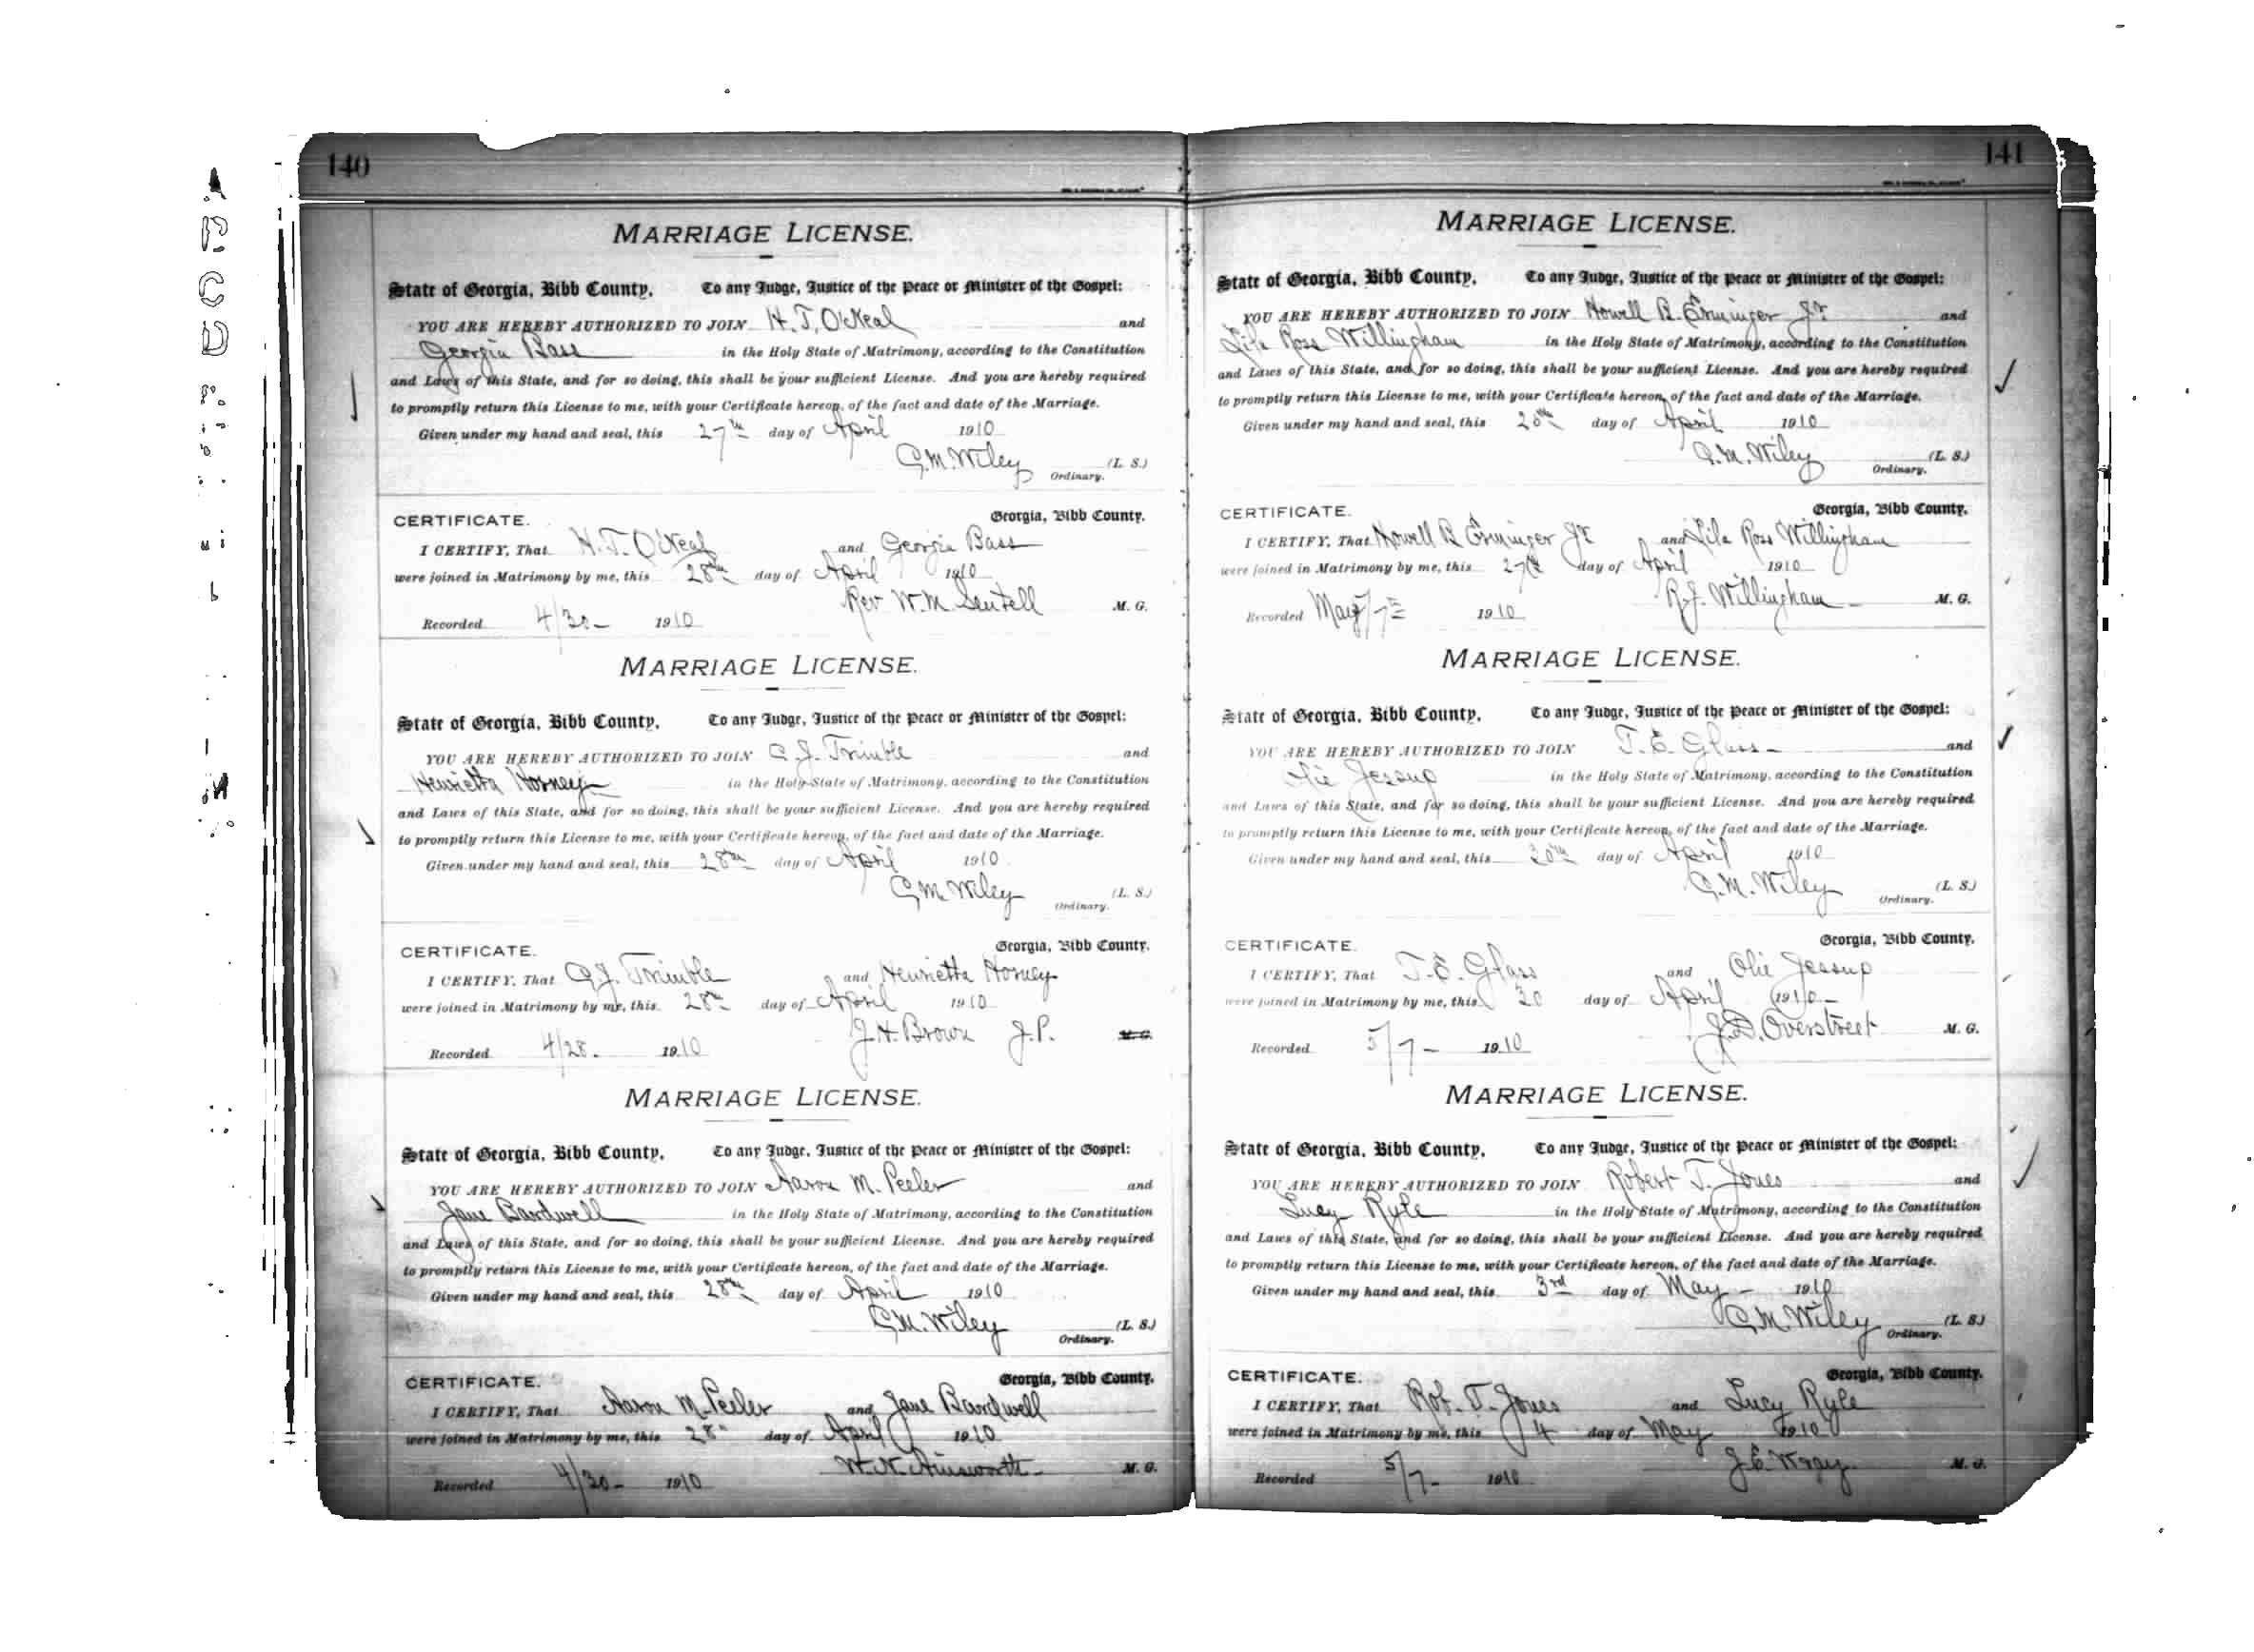 140
MARRIAGE LICENSE.
State of Georgia, Bibb County. To any Judge, Justice of the Peace or Minister of the Gospel:
YOU ARE HEREBY AUTHORIZED TO JOIN H. T. O'Neal and
Georgia Bass in the Holy State of Matrimony, according to the Constitution
and Laws of this State, and for so doing, this shall be your sufficient License. And you are hereby required
to promptly return this License to me, with your Certificate hereon, of the fact and date of the Marriage.
Given under my hand and seal, this 27th day of April 1910
C. M. Wiley (L. S.)
Ordinary.
CERTIFICATE. Georgia, Bibb County.
I CERTIFY, That H. T. O'Neal and Georgia Bass
were joined in Matrimony by me, this 28th day of April 1910
Rev W. M. Sentell M. G.
Recorded 4/30- 1910
MARRIAGE LICENSE.
State of Georgia, Bibb County. To any Judge, Justice of the Peace or Minister of the Gospel:
YOU ARE HEREBY AUTHORIZED TO JOIN C. J. Trimble and
Henrietta Horney in the Holy State of Matrimony, according to the Constitution
and Laws of this State, and for so doing, this shall be your sufficient License. And you are hereby required
to promptly return this License to me, with your Certificate hereon, of the fact and date of the Marriage.
Given under my hand and seal, this 28th day of April 1910
C. M. Wiley (L. S.)
Ordinary.
CERTIFICATE. Georgia, Bibb County.
I CERTIFY, That C. J. Trimble and Henrietta Horney
were joined in Matrimony by me, this 28th day of April 1910
J. H. Brown J. P. M. G.
Recorded 4/28- 1910
MARRIAGE LICENSE.
State of Georgia, Bibb County. To any Judge, Justice of the Peace or Minister of the Gospel:
YOU ARE HEREBY AUTHORIZED TO JOIN Aaron M. Peeler and
Jane Bardwell in the Holy State of Matrimony, according to the Constitution
and Laws of this State, and for so doing, this shall be your sufficient License. And you are hereby required
to promptly return this License to me, with your Certificate hereon, of the fact and date of the Marriage.
Given under my hand and seal, this 28th day of April 1910
C. M. Wiley (L. S.)
Ordinary.
CERTIFICATE. Georgia, Bibb County.
I CERTIFY, That Aaron M. Peeler and Jane Bardwell
were joined in Matrimony by me, this 28th day of April 1910
W. N. Ainsworth M. G.
Recorded 4/30- 1910
141
MARRIAGE LICENSE.
State of Georgia, Bibb County. To any Judge, Justice of the Peace or Minister of the Gospel:
YOU ARE HEREBY AUTHORIZED TO JOIN Howell B. Erminger Jr and
Lila Ross Willingham in the Holy State of Matrimony, according to the Constitution
and Laws of this State, and for so doing, this shall be your sufficient License. And you are hereby required
to promptly return this License to me, with your Certificate hereon, of the fact and date of the Marriage.
Given under my hand and seal, this day of April 1910
C. M. Wiley (L. S.)
Ordinary.
CERTIFICATE. Georgia, Bibb County.
I CERTIFY, That Howell B Erminger Jr and Lila Ross Willingham
were joined in Matrimony by me, this 27th day of April 1910
R. J. Willingham M. G.
Recorded May 7 1910
MARRIAGE LICENSE.
State of Georgia, Bibb County. To any Judge, Justice of the Peace or Minister of the Gospel:
YOU ARE HEREBY AUTHORIZED TO JOIN T. E. Glass and
Olie Jessup in the Holy State of Matrimony, according to the Constitution
and Laws of this State, and for so doing, this shall be your sufficient License. And you are hereby required
to promptly return this License to me, with your Certificate hereon, of the fact and date of the Marriage.
Given under my hand and seal, this 30th day of April 1910
C. M. Wiley (L. S.)
Ordinary.
CERTIFICATE. Georgia, Bibb County.
I CERTIFY, That T. E. Glass and Olie Jessup
were joined in Matrimony by me, this 30 day of April 1910
J. D. Overstreet M. G.
Recorded 5/7- 1910
MARRIAGE LICENSE.
State of Georgia, Bibb County. To any Judge, Justice of the Peace or Minister of the Gospel:
YOU ARE HEREBY AUTHORIZED TO JOIN Robert T. Jones and
Lucy Ryle in the Holy State of Matrimony, according to the Constitution
and Laws of this State, and for so doing, this shall be your sufficient License. And you are hereby required
to promptly return this License to me, with your Certificate hereon, of the fact and date of the Marriage.
Given under my hand and seal, this 3rd day of May 1910
C. M. Wiley (L. S.)
Ordinary.
CERTIFICATE. Georgia, Bibb County.
I CERTIFY, That Rob. T. Jones and Lucy Ryle
were joined in Matrimony by me, this 4 day of May 1910
J. E. Wray M. G.
Recorded 5/7- 1910